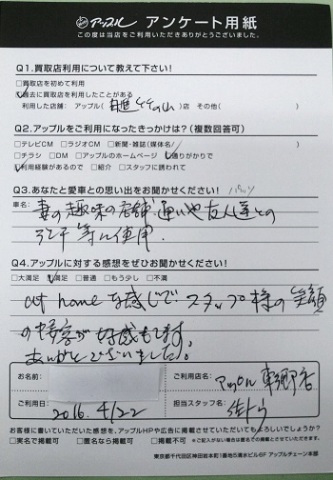 アップル アンケート用紙
この度は当店をご利用いただきありがとうございました。
Q1.買取店利用について教えて下さい!
□買取店を初めて利用
□過去に買取店を利用したことがある
利用した店舗: アップル( 店 その他( )
Q2.アップルをご利用になったきっかけは?(複数回答可)
□テレビCM □ラジオCM □新聞・雑誌(媒体名/ )
□チラシ □DM □アップルのホームページ □通りがかりで
□利用経験があるので □紹介 □スタッフに誘われて
Q3.あなたと愛車との思い出をお聞かせください!
車名:
妻の趣味の店舗通いや友人達との
ランチ等に使用.
Q4.アップルに対する感想をぜひお聞かせください!
□大満足 □満足 □普通 □もう少し □不満
at home な感じで スタッフ様の笑顔
の接客が好感もてます。
ありがとうございました。
お名前: ご利用店名: アップル 東郷店
ご利用日: 2016.4/22 担当スタッフ名:
お客様に書いていただいた感想を、アップルHPや広告に掲載させていただいてもよろしいでしょうか?
□実名で掲載可 □匿名なら掲載可 □掲載不可 ※ご記入がない場合は匿名での掲載とさせていただきます。
東京都千代田区神田岩本町1番地5清水ビル6F アップルチェーン本部